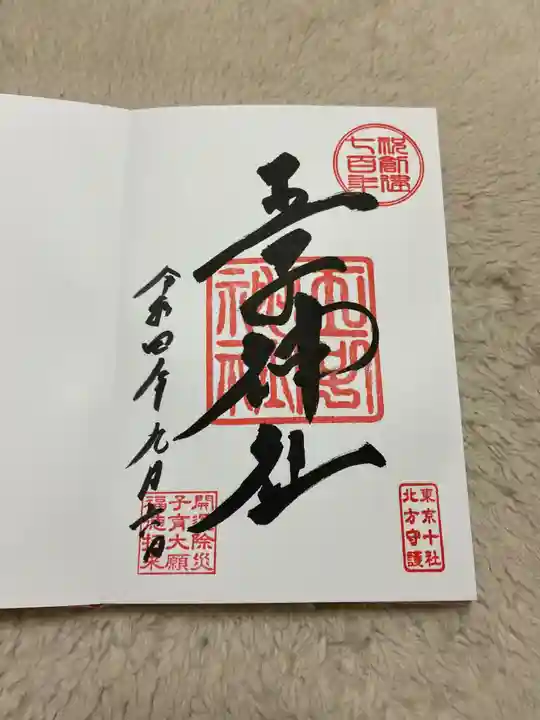 祝創建
七百年
王子神社
東京十社
北方守護
令和四年九月六日
開運除災
子育大願
福徳招来